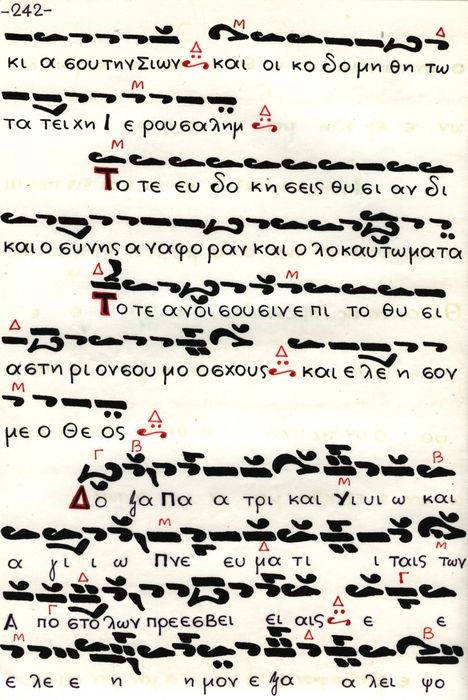 -242-
κι α σου την Σιων και οι κο δο μη θη τω
τα τείχη Ι ε ρουσαλημ
Το τε ευ δο κη σεις θυ σι αν δι
και ο συνης α ναφο ραν και ο λο καυ τωματα
Το τε ανοι σουσιν ε πι το θυ σι
αστη ρι ον σου μο οσχους και ε λε η σον
με ο Θε ος
Δο ξα Πα α τρι και Υι υι ω και
α γι ι ω Πνε ευ μα τι ι ταις των
Α πο στο λων πρεεσβει ει αις ε ε
ε λε ε η η μον ε ξα α λει ψο